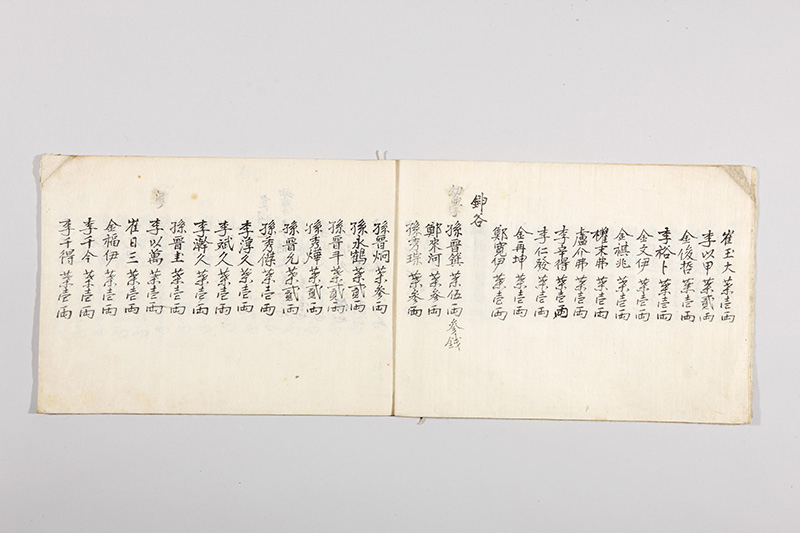 崔玉大 葉壱両
李以甲 葉貳両
金俊哲 葉壱両
李裕卜 葉壱両
金文伊 葉壱両
金祺兆 葉壱両
權末弗 葉壱両
盧介弗 葉壱両
李辛得 葉壱両
李仁發 葉壱両
金再坤 葉壱両
鄭寶伊 葉壱両
鉚谷
幼學
孫晋 葉伍両參錢
鄭來河 葉參両
孫秀璨 葉參両
孫晋炯 葉參両
孫永鶴 葉貳両
孫晋斗 葉貳両
孫秀燁 葉貳両
孫晋允 葉貳両
孫秀傑 葉壱両
李淳久 葉壱両
李斌久 葉壱両
李濟久 葉壱両
孫晋圭 葉壱両
李以萬 葉壱両
崔日三 葉壱両
金福伊 葉壱両
李千令 葉壱両
李千得 葉壱両